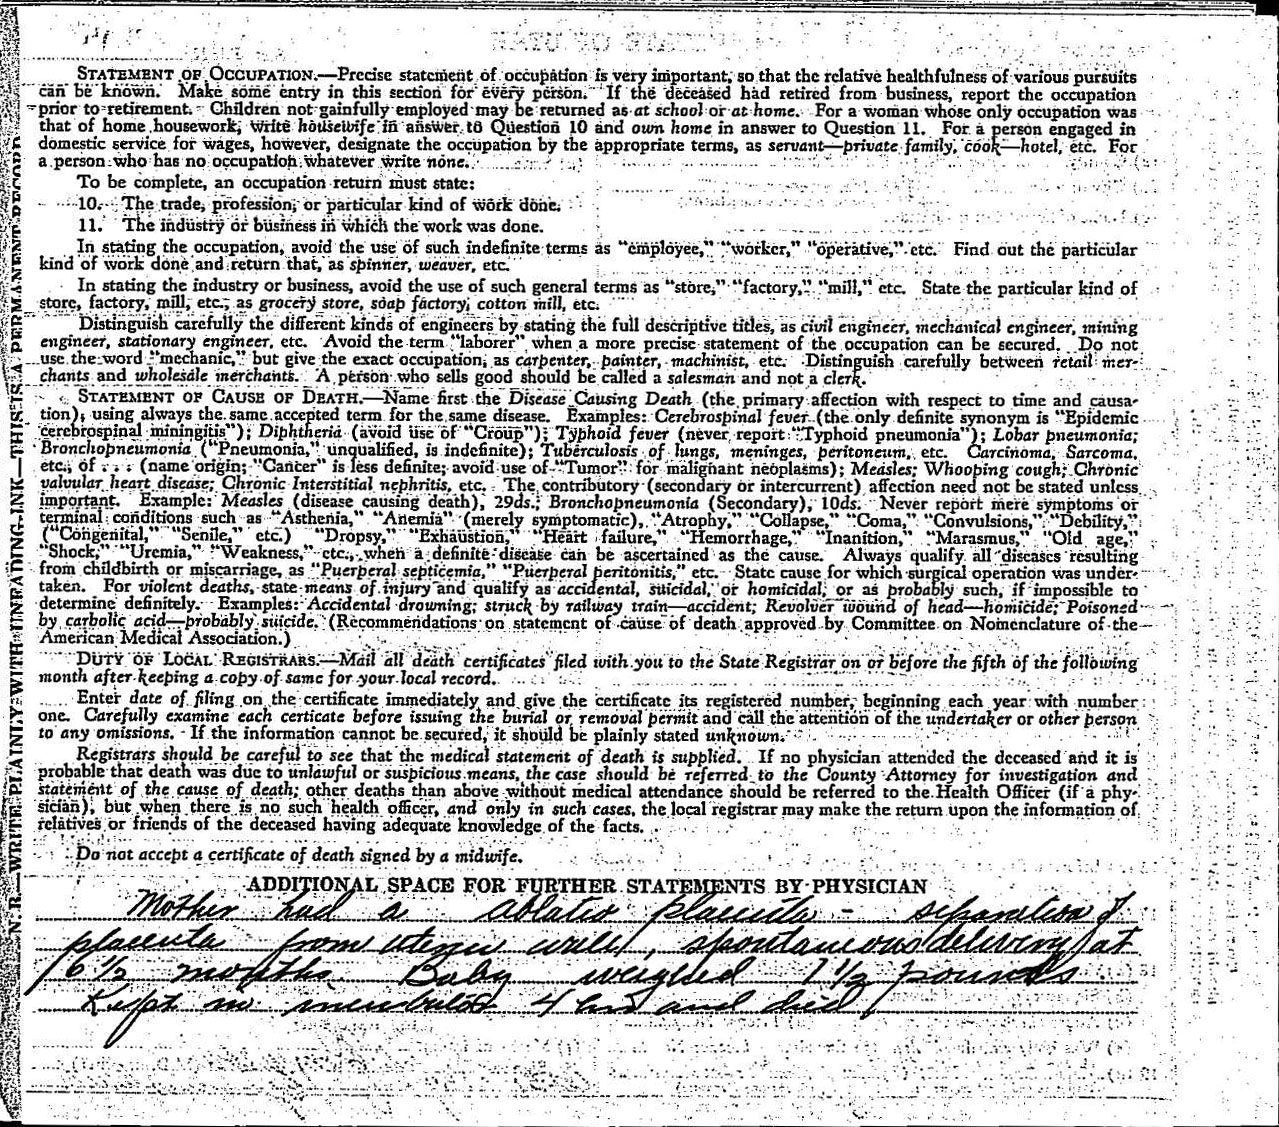 STATE OF UTAH
STATEMENT OF OCCUPATION.—Precise statement of occupation is very important, so that the relative healthfulness of various pursuits
can be known. Make some entry in this section for every person. If the deceased had retired from business, report the occupation
prior to retirement. Children not gainfully employed may be returned as at school or at home. For a woman whose only occupation was
that of home housework, write housewife in answer to Question 10 and own home in answer to Question 11. For a person engaged in
domestic service for wages, however, designate the occupation by the appropriate terms, as servant—private family, cook—hotel, etc. For
a person who has no occupation whatever write none.
To be complete, an occupation return must state:
10. The trade, profession, or particular kind of work done.
11. The industry or business in which the work was done.
In stating the occupation, avoid the use of such indefinite terms as "employee," "worker," "operative," etc. Find out the particular
kind of work done and return that, as spinner, weaver, etc.
In stating the industry or business, avoid the use of such general terms as "store," "factory," "mill," etc. State the particular kind of
store, factory, mill, etc., as grocery store, soap factory, cotton mill, etc.
Distinguish carefully the different kinds of engineers by stating the full descriptive titles, as civil engineer, mechanical engineer, mining
engineer, stationary engineer, etc. Avoid the term "laborer" when a more precise statement of the occupation can be secured. Do not
use the word "mechanic," but give the exact occupation, as carpenter, painter, machinist, etc. Distinguish carefully between retail mer-
chants and wholesale merchants. A person who sells good should be called a salesman and not a clerk.
STATEMENT OF CAUSE OF DEATH.—Name first the Disease Causing Death (the primary affection with respect to time and causa-
tion), using always the same accepted term for the same disease. Examples: Cerebrospinal fever (the only definite synonym is "Epidemic
cerebrospinal miningitis"); Diphtheria (avoid use of "Croup"); Typhoid fever (never report "Typhoid pneumonia"); Lobar pneumonia;
Bronchopneumonia ("Pneumonia," unqualified, is indefinite); Tuberculosis of lungs, meninges, peritoneum, etc. Carcinoma, Sarcoma,
etc., of . . . (name origin; "Cancer" is less definite; avoid use of "Tumor" for malignant neoplasms); Measles; Whooping cough; Chronic
valvular heart disease; Chronic Interstitial nephritis, etc. The contributory (secondary or intercurrent) affection need not be stated unless
important. Example: Measles (disease causing death), 29ds.; Bronchopneumonia (Secondary), 10ds. Never report mere symptoms or
terminal conditions such as "Asthenia," "Anemia" (merely symptomatic), "Atrophy," "Collapse," "Coma," "Convulsions," "Debility,"
("Congenital," "Senile," etc.) "Dropsy," "Exhaustion," "Heart failure," "Hemorrhage," "Inanition," "Marasmus," "Old age,"
"Shock," "Uremia," "Weakness," etc., when a definite disease can be ascertained as the cause. Always qualify all diseases resulting
from childbirth or miscarriage, as "Puerperal septicemia," "Puerperal peritonitis," etc. State cause for which surgical operation was under-
taken. For violent deaths, state means of injury and qualify as accidental, suicidal, or homicidal, or as probably such, if impossible to
determine definitely. Examples: Accidental drowning; struck by railway train—accident; Revolver wound of head—homicide; Poisoned
by carbolic acid—probably suicide. (Recommendations on statement of cause of death approved by Committee on Nomenclature of the
American Medical Association.)
DUTY OF LOCAL REGISTRARS.—Mail all death certificates filed with you to the State Registrar on or before the fifth of the following
month after keeping a copy of same for your local record.
Enter date of filing on the certificate immediately and give the certificate its registered number, beginning each year with number
one. Carefully examine each certicate before issuing the burial or removal permit and call the attention of the undertaker or other person
to any omissions. If the information cannot be secured, it should be plainly stated unknown.
Registrars should be careful to see that the medical statement of death is supplied. If no physician attended the deceased and it is
probable that death was due to unlawful or suspicious means, the case should be referred to the County Attorney for investigation and
statement of the cause of death; other deaths than above without medical attendance should be referred to the Health Officer (if a phy-
sician), but when there is no such health officer, and only in such cases, the local registrar may make the return upon the information of
relatives or friends of the deceased having adequate knowledge of the facts.
Do not accept a certificate of death signed by a midwife.
ADDITIONAL SPACE FOR FURTHER STATEMENTS BY PHYSICIAN
Mother had a ablatio placenta - separation of
placenta from uterine wall, spontaneous delivery at
6 1/2 months. Baby weighed 1 1/2 pounds
Kept in incubator 4 hrs and died
N. B.—WRITE PLAINLY WITH UNFADING INK—THIS IS A PERMANENT RECORD